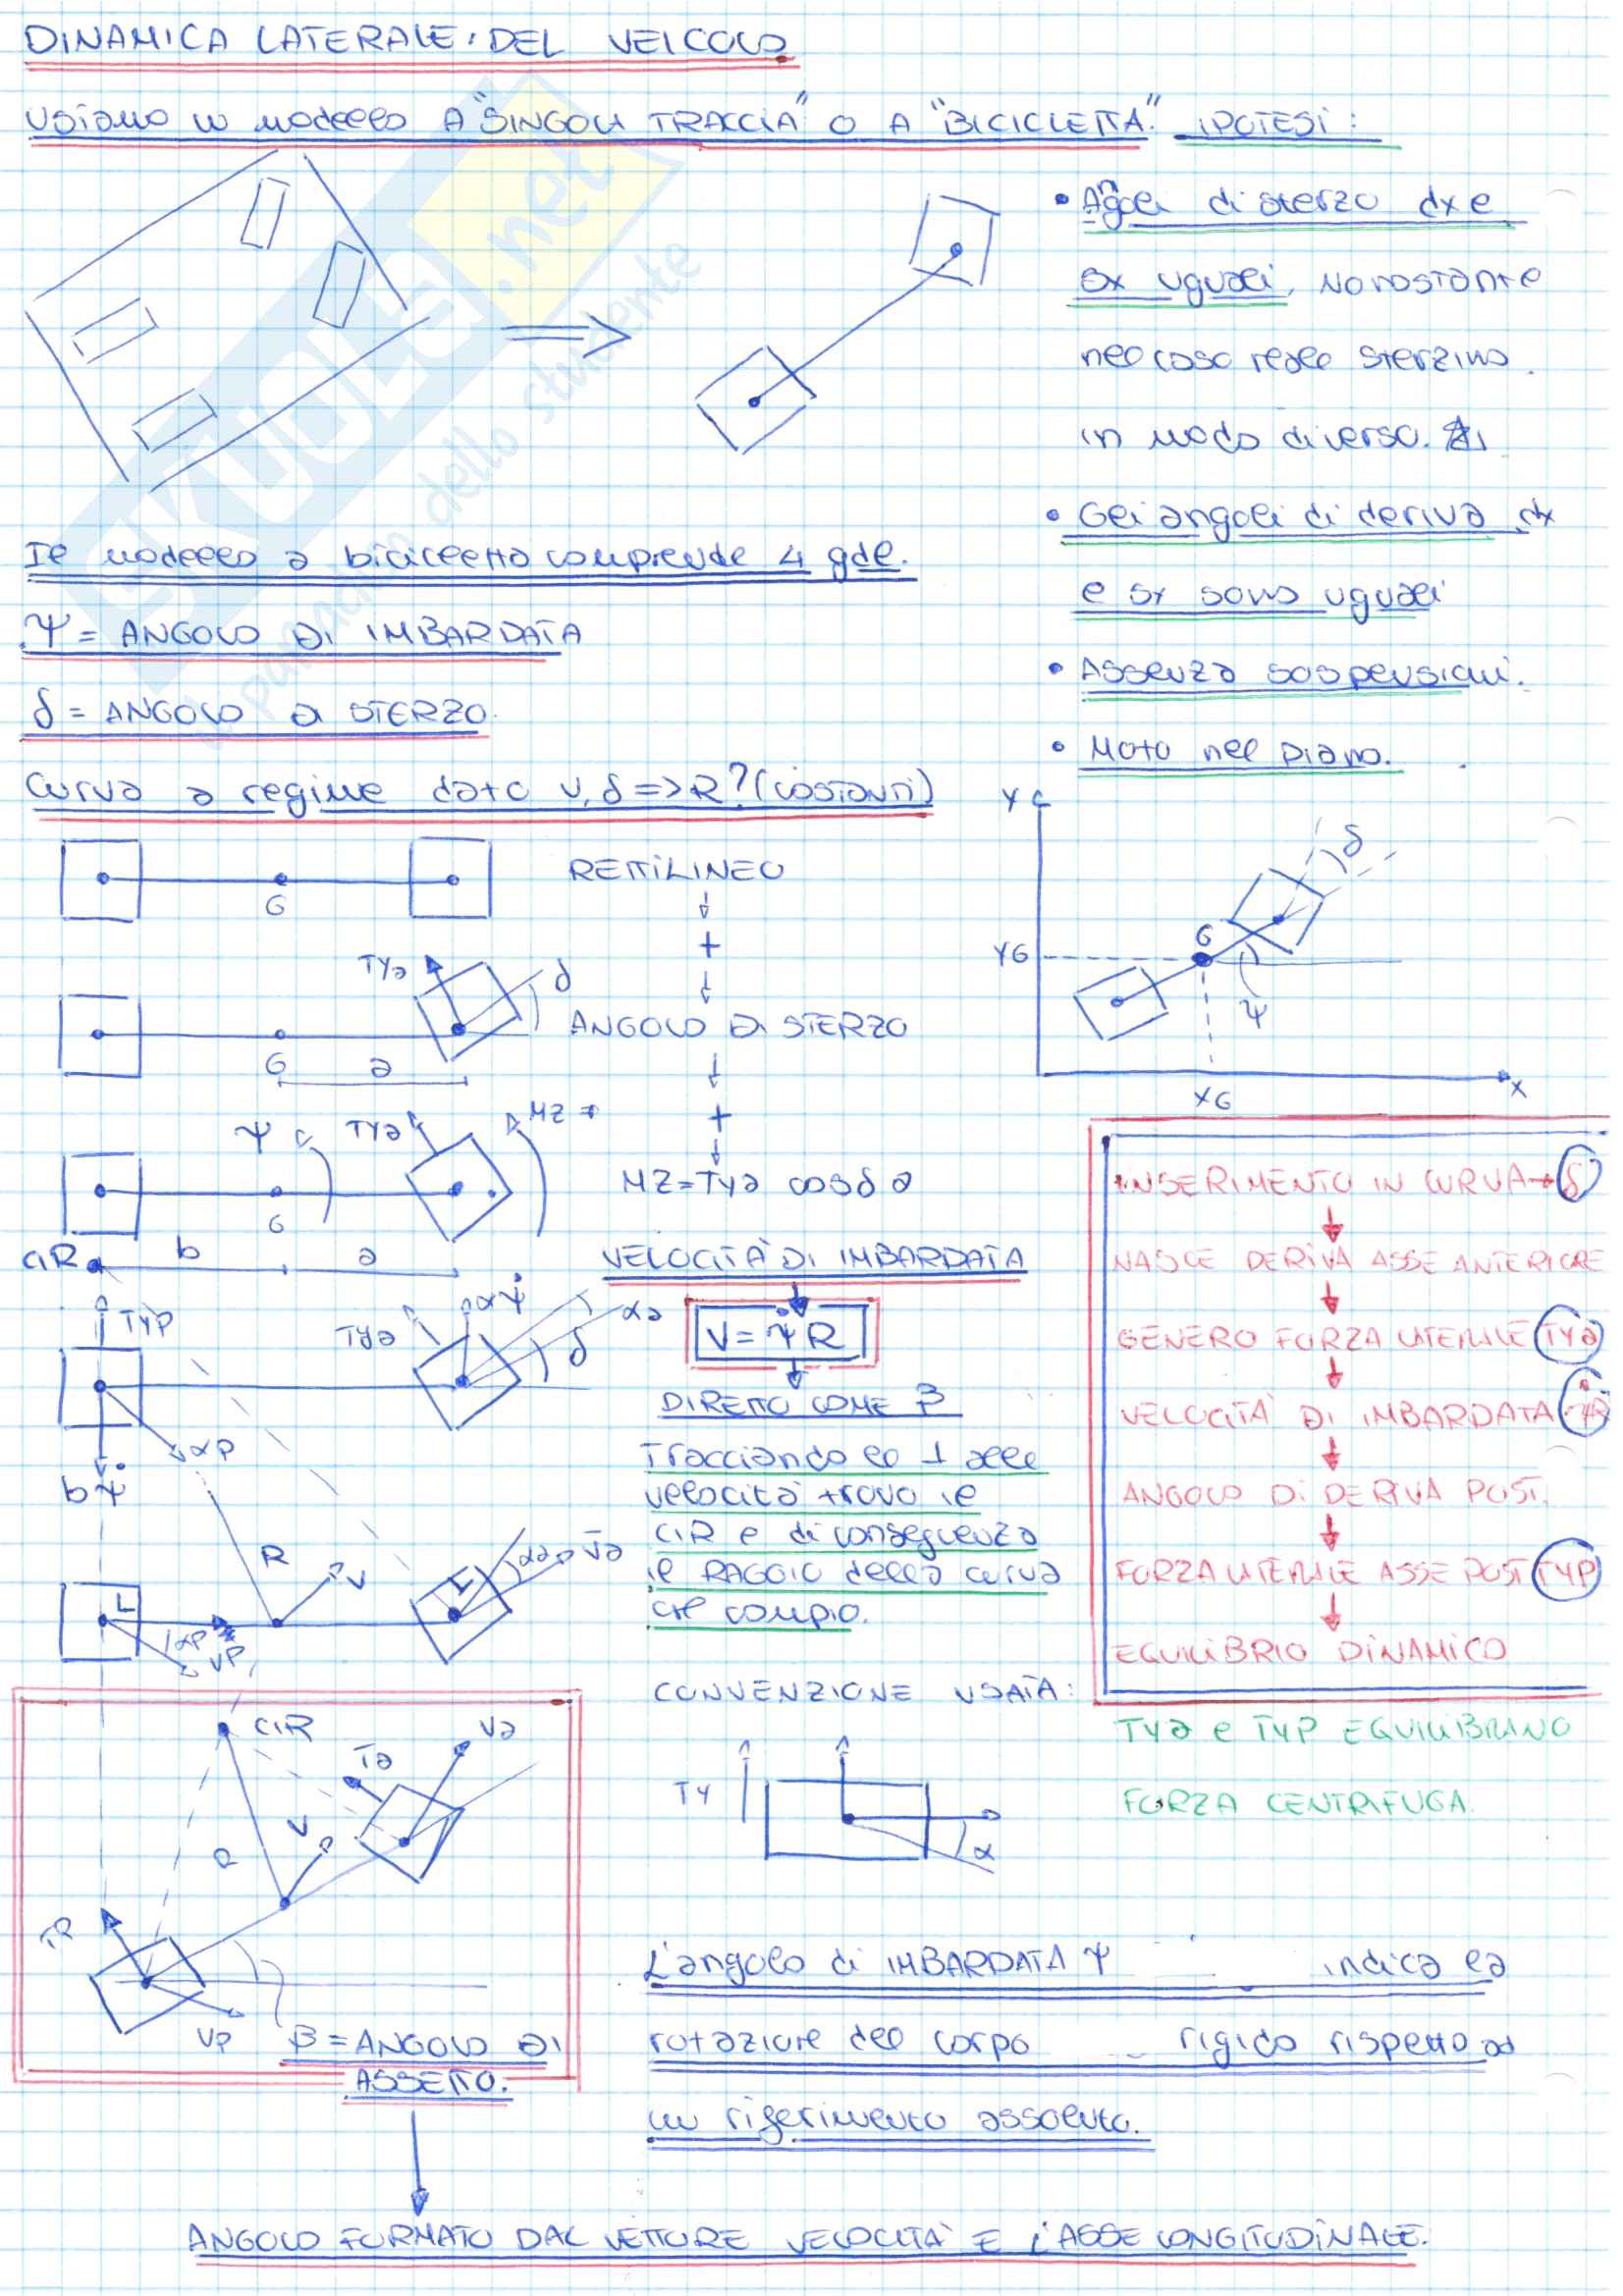 DINAMICA LATERALE DEL VEICOLO
USIAMO UN MODELLO A "SINGOLA TRACCIA" O A "BICICLETTA". IPOTESI:
• Angoli di sterzo dx e
sx uguali, NONOSTANTE
nel caso reale sterzino
in modo diverso.
• Gli angoli di deriva dx
e sx sono uguali
• Assenza sospensioni.
• Moto nel piano.
Il modello a bicicletta comprende 4 gdl.
Ψ = ANGOLO DI IMBARDATA
δ = ANGOLO DI STERZO.
Curva a regime dato V, δ => R? (costanti)
G
RETTILINEO
+
TYa
δ
G
a
ANGOLO DI STERZO
+
Ψ
TYa
MZ
G
MZ = TYa cosδ a
CIR
b
a
VELOCITÀ DI IMBARDATA
V = Ψ̇ R
DIRETTO COME β
Tracciando le ⊥ alle
velocità trovo il
CIR e di conseguenza
il RAGGIO della curva
che compio.
TYP
TYa
aΨ̇
αa
δ
αP
bΨ̇
R
V
αa
Va
αP
VP
Y
δ
YG
G
Ψ
XG
X
INSERIMENTO IN CURVA → δ
NASCE DERIVA ASSE ANTERIORE
GENERO FORZA LATERALE TYa
VELOCITÀ DI IMBARDATA Ψ̇R
ANGOLO DI DERIVA POST.
FORZA LATERALE ASSE POST TYP
EQUILIBRIO DINAMICO
TYa e TYP EQUILIBRANO
FORZA CENTRIFUGA.
CONVENZIONE USATA:
TY
α
CIR
Va
Ta
V
R
TR
VP
β = ANGOLO DI
ASSETTO.
L'angolo di IMBARDATA Ψ indica la
rotazione del corpo rigido rispetto ad
un riferimento assoluto.
ANGOLO FORMATO DAL VETTORE VELOCITÀ E L'ASSE LONGITUDINALE.
SKUOLA.net
il paradiso dello studente